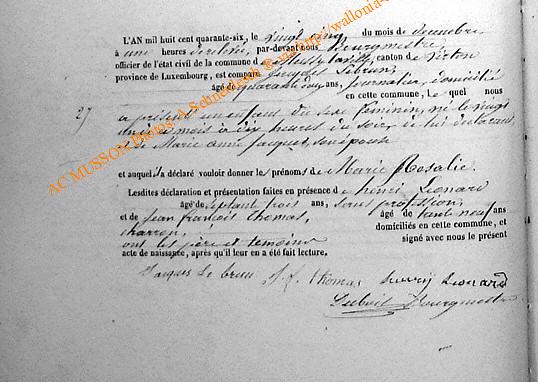 L'AN mil huit cent quarante-six, le vingt cinq du mois de décembre
à une heures de relevé, par-devant nous Bourgmestre,
officier de l'état civil de la commune de Mussy la ville, canton de Virton
province de Luxembourg, est comparu Jacques Lebrun,
âgé de quarante ans, journalier, domicilié
en cette commune, Le quel nous
27
a présenté un enfant du sexe féminin, né le vingt
de ce mois à dix heures du soir, de lui déclarant
et de Marie Anne Jacques, son épouse
et auquel il a déclaré vouloir donner les prénoms de Marie Rosalie.
Lesdites déclaration et présentation faites en présence de henri Léonard
âgé de septante trois ans, sans profession,
et de jean françois thomas, âgé de ans
charron, domiciliés en cette commune, et
ont les père et témoins signé avec nous le présent
acte de naissance, après qu'il leur en a été fait lecture,
Jacques Le brun J. f. thomas henry Leonard
Bourgmestre
AC MUSSON Photos: A Schneider